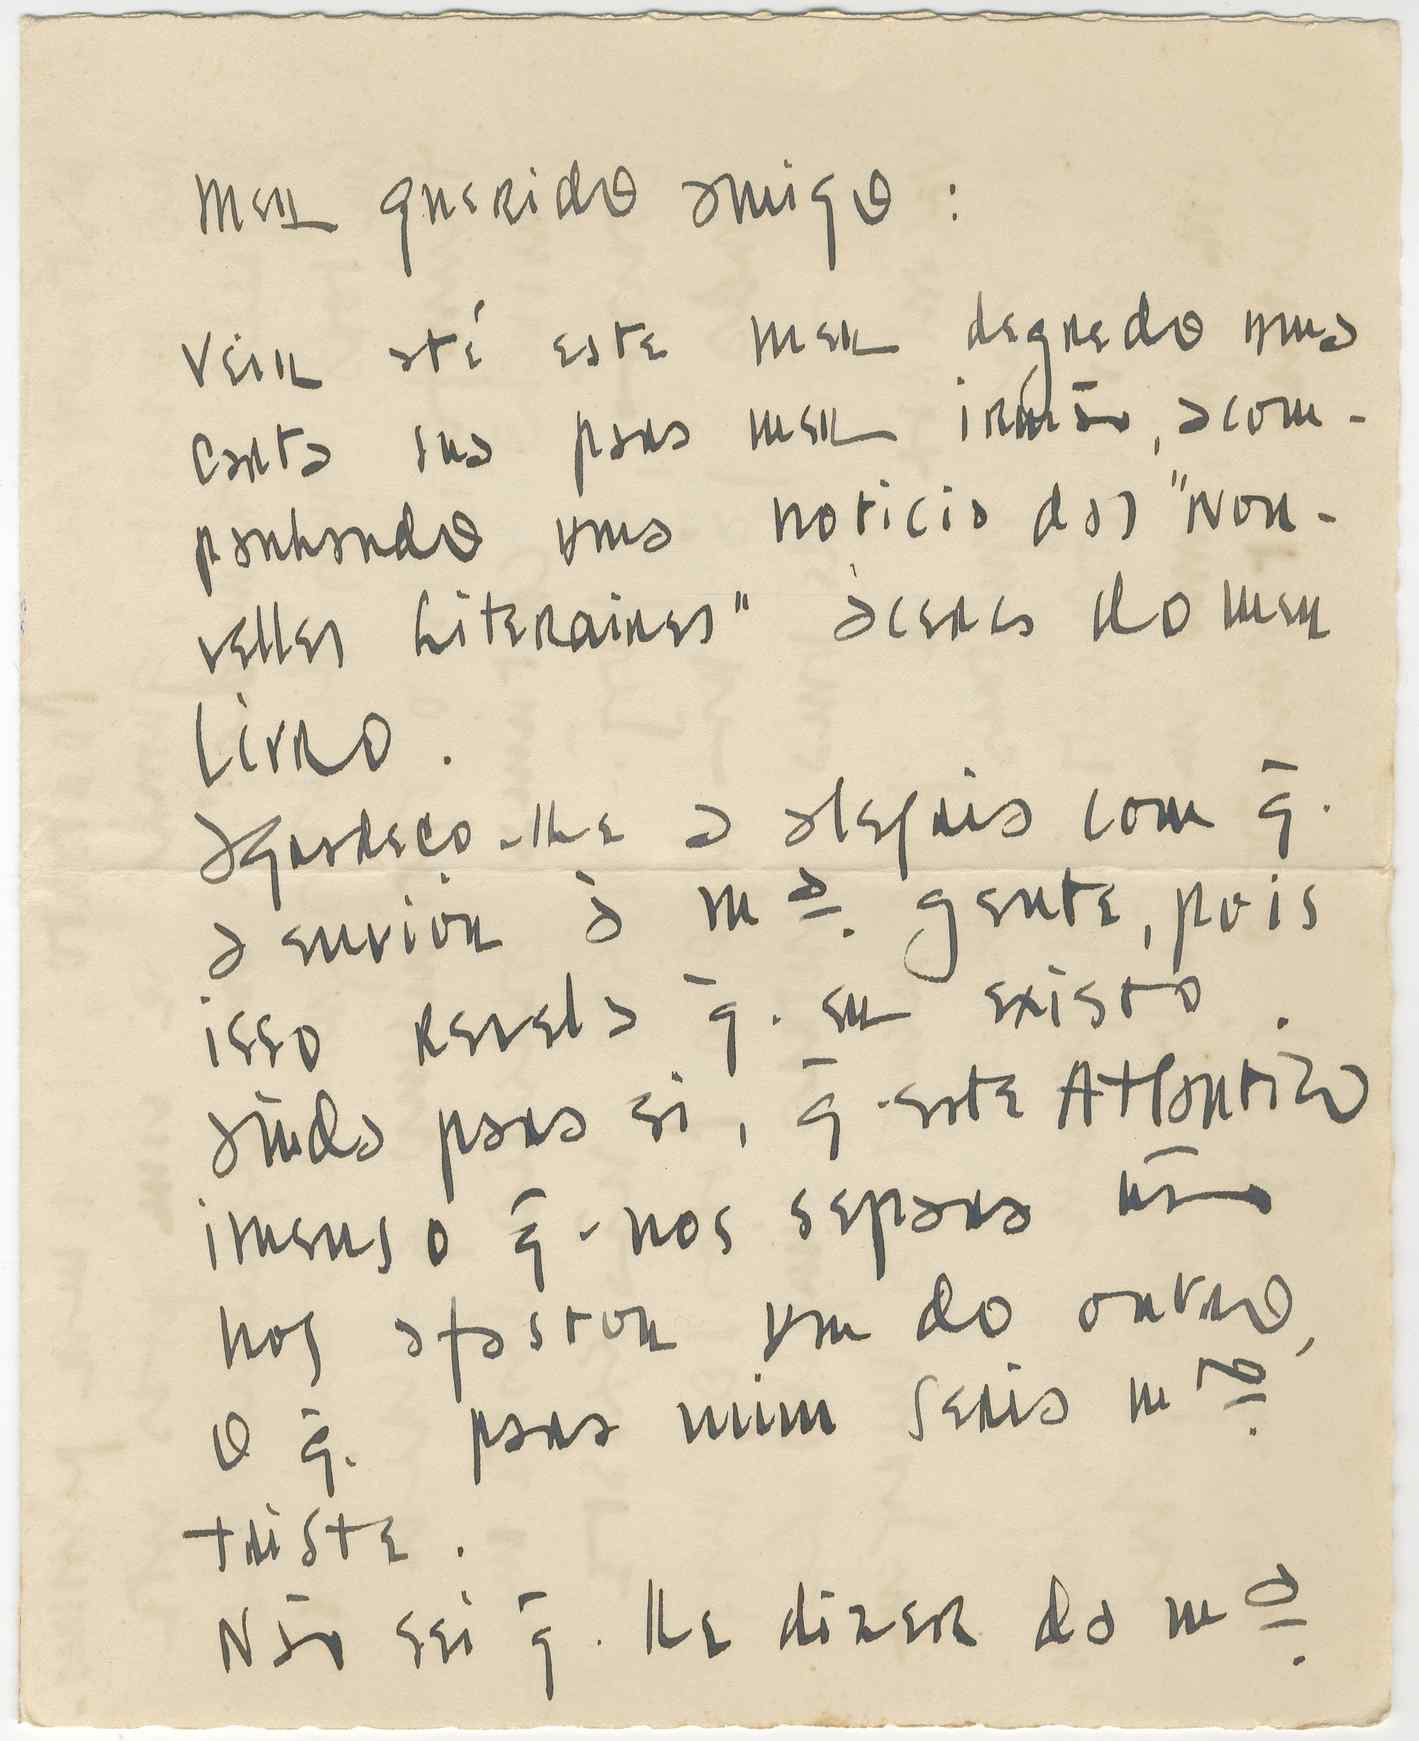 Meu querido amigo:
Veiu até este meu degredo uma
carta sua para meu irmão, acom-
panhando uma noticia das "Nou-
velles Literaires" àcerca do meu
livro.
Agradeço-lhe a alegria com q̄.
a enviou à mª. gente, pois
isso revela q̄. eu existo
ainda para si, q̄. este Atlantico
imenso q̄. nos separa não
nos afastou um do outro,
o q̄. para mim seria mtº.
triste.
Não sei q̄. lhe dizer da mª.